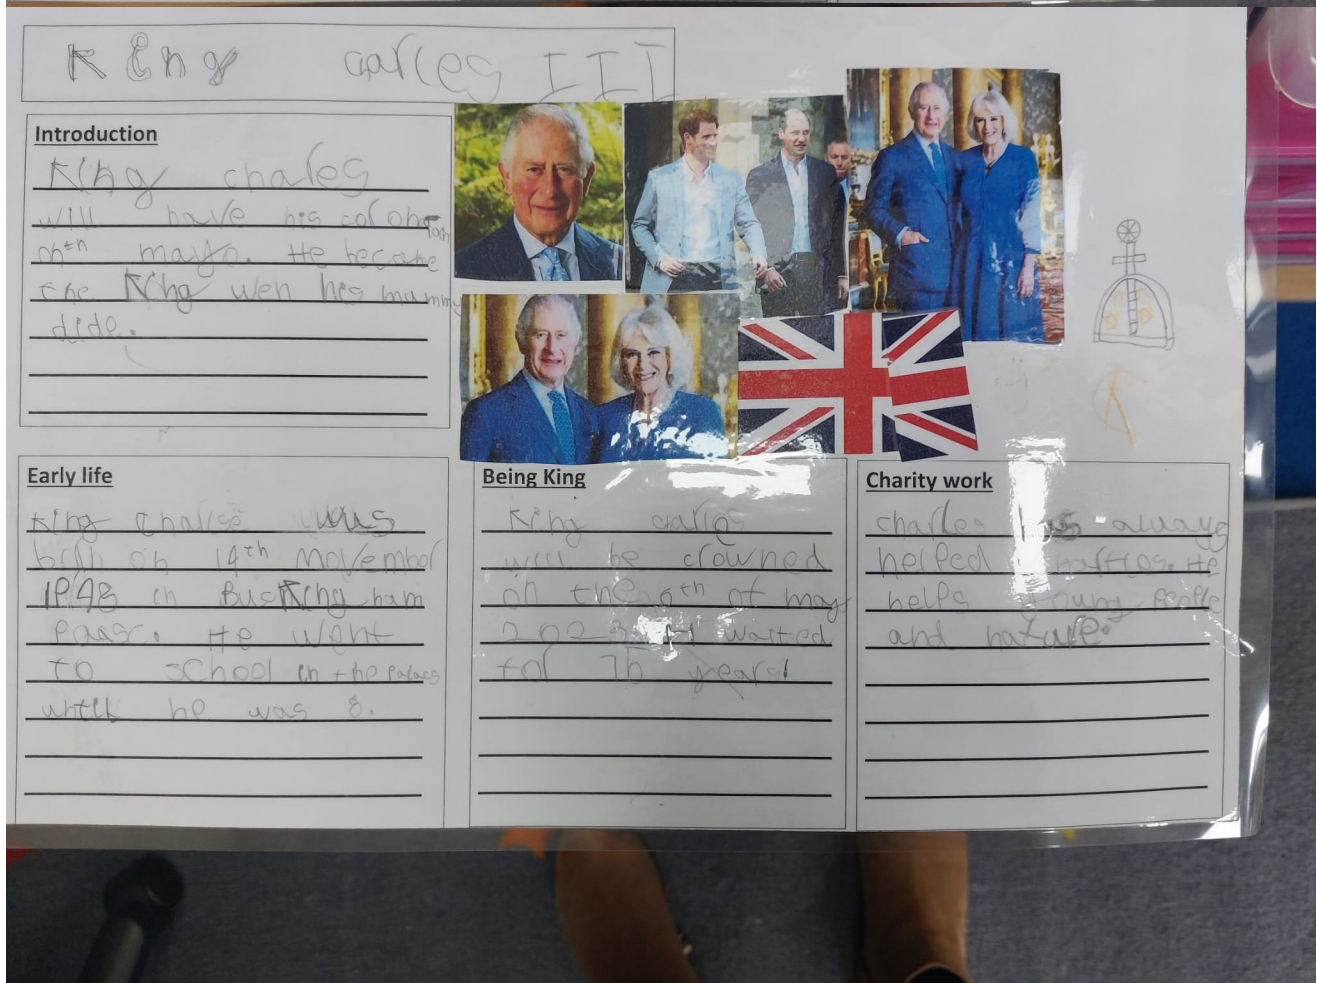 King carles III
Introduction
King chales
will have his coronation
mth mayo. He became
the King wen his mummy
dide.
Early life
King Charlse was
born on 14th November
1948 in BusKing ham
Paasc. He went
to school in the Palace
until he was 8.
Being King
King carles
will be crowned
on the 6th of may
2023. H waited
for 75 years!
Charity work
charles has always
helped charites. He
helps young People
and nature.